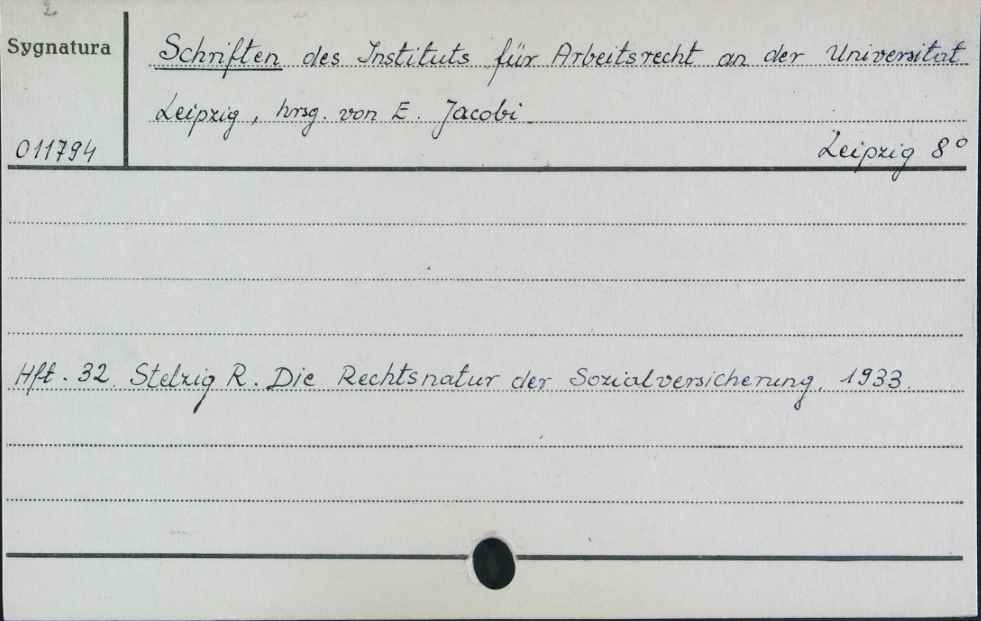 2
Sygnatura
Schriften des Instituts für Arbeitsrecht an der Universitat
Leipzig, hrsg. von E. Jacobi
011794
Leipzig 8°
Hft. 32. Stelzig R. Die Rechtsnatur der Sozialversicherung. 1933.